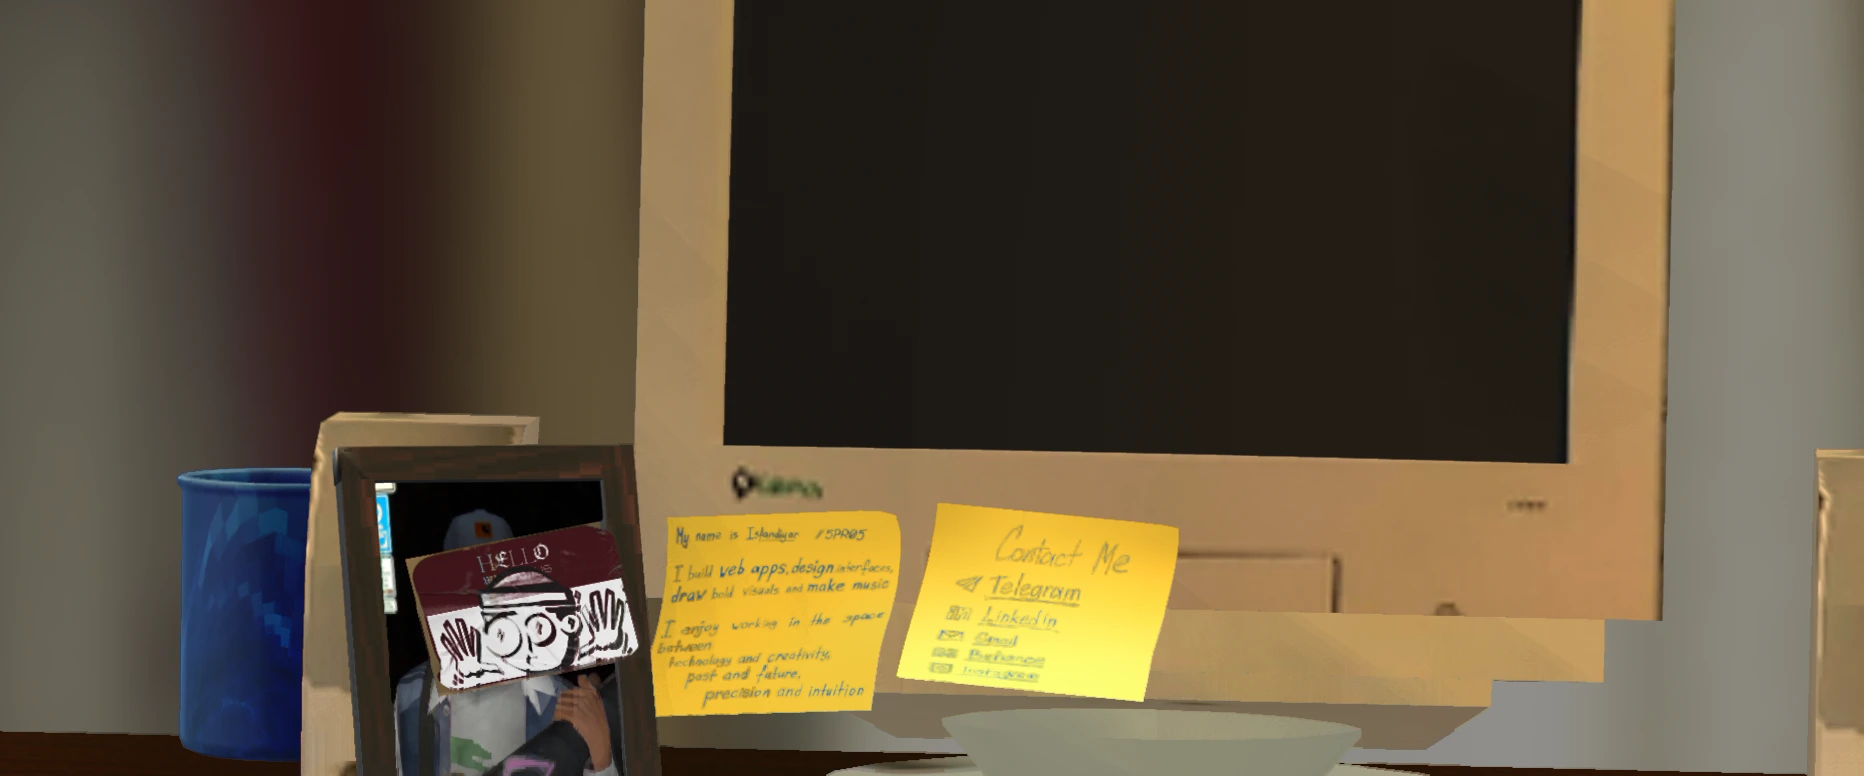 HELLO
My name is Iskandiyar //SPR05
I build web apps, design interfaces,
draw bold visuals and make music
I enjoy working in the space
between
technology and creativity,
past and future,
precision and intuition
Contact Me
Telegram
Linkedin
Gmail
Behance
Instagram